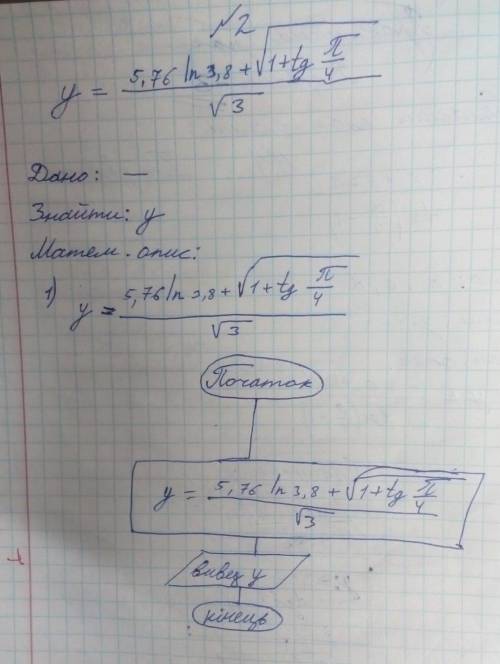 №2
y = (5,76 ln 3,8 + √(1 + tg π/4)) / √3
Дано: —
Знайти: y
Матем. опис:
1) y = (5,76 ln 3,8 + √(1 + tg π/4)) / √3
Початок
y = (5,76 ln 3,8 + √(1 + tg π/4)) / √3
вивед y
кінець